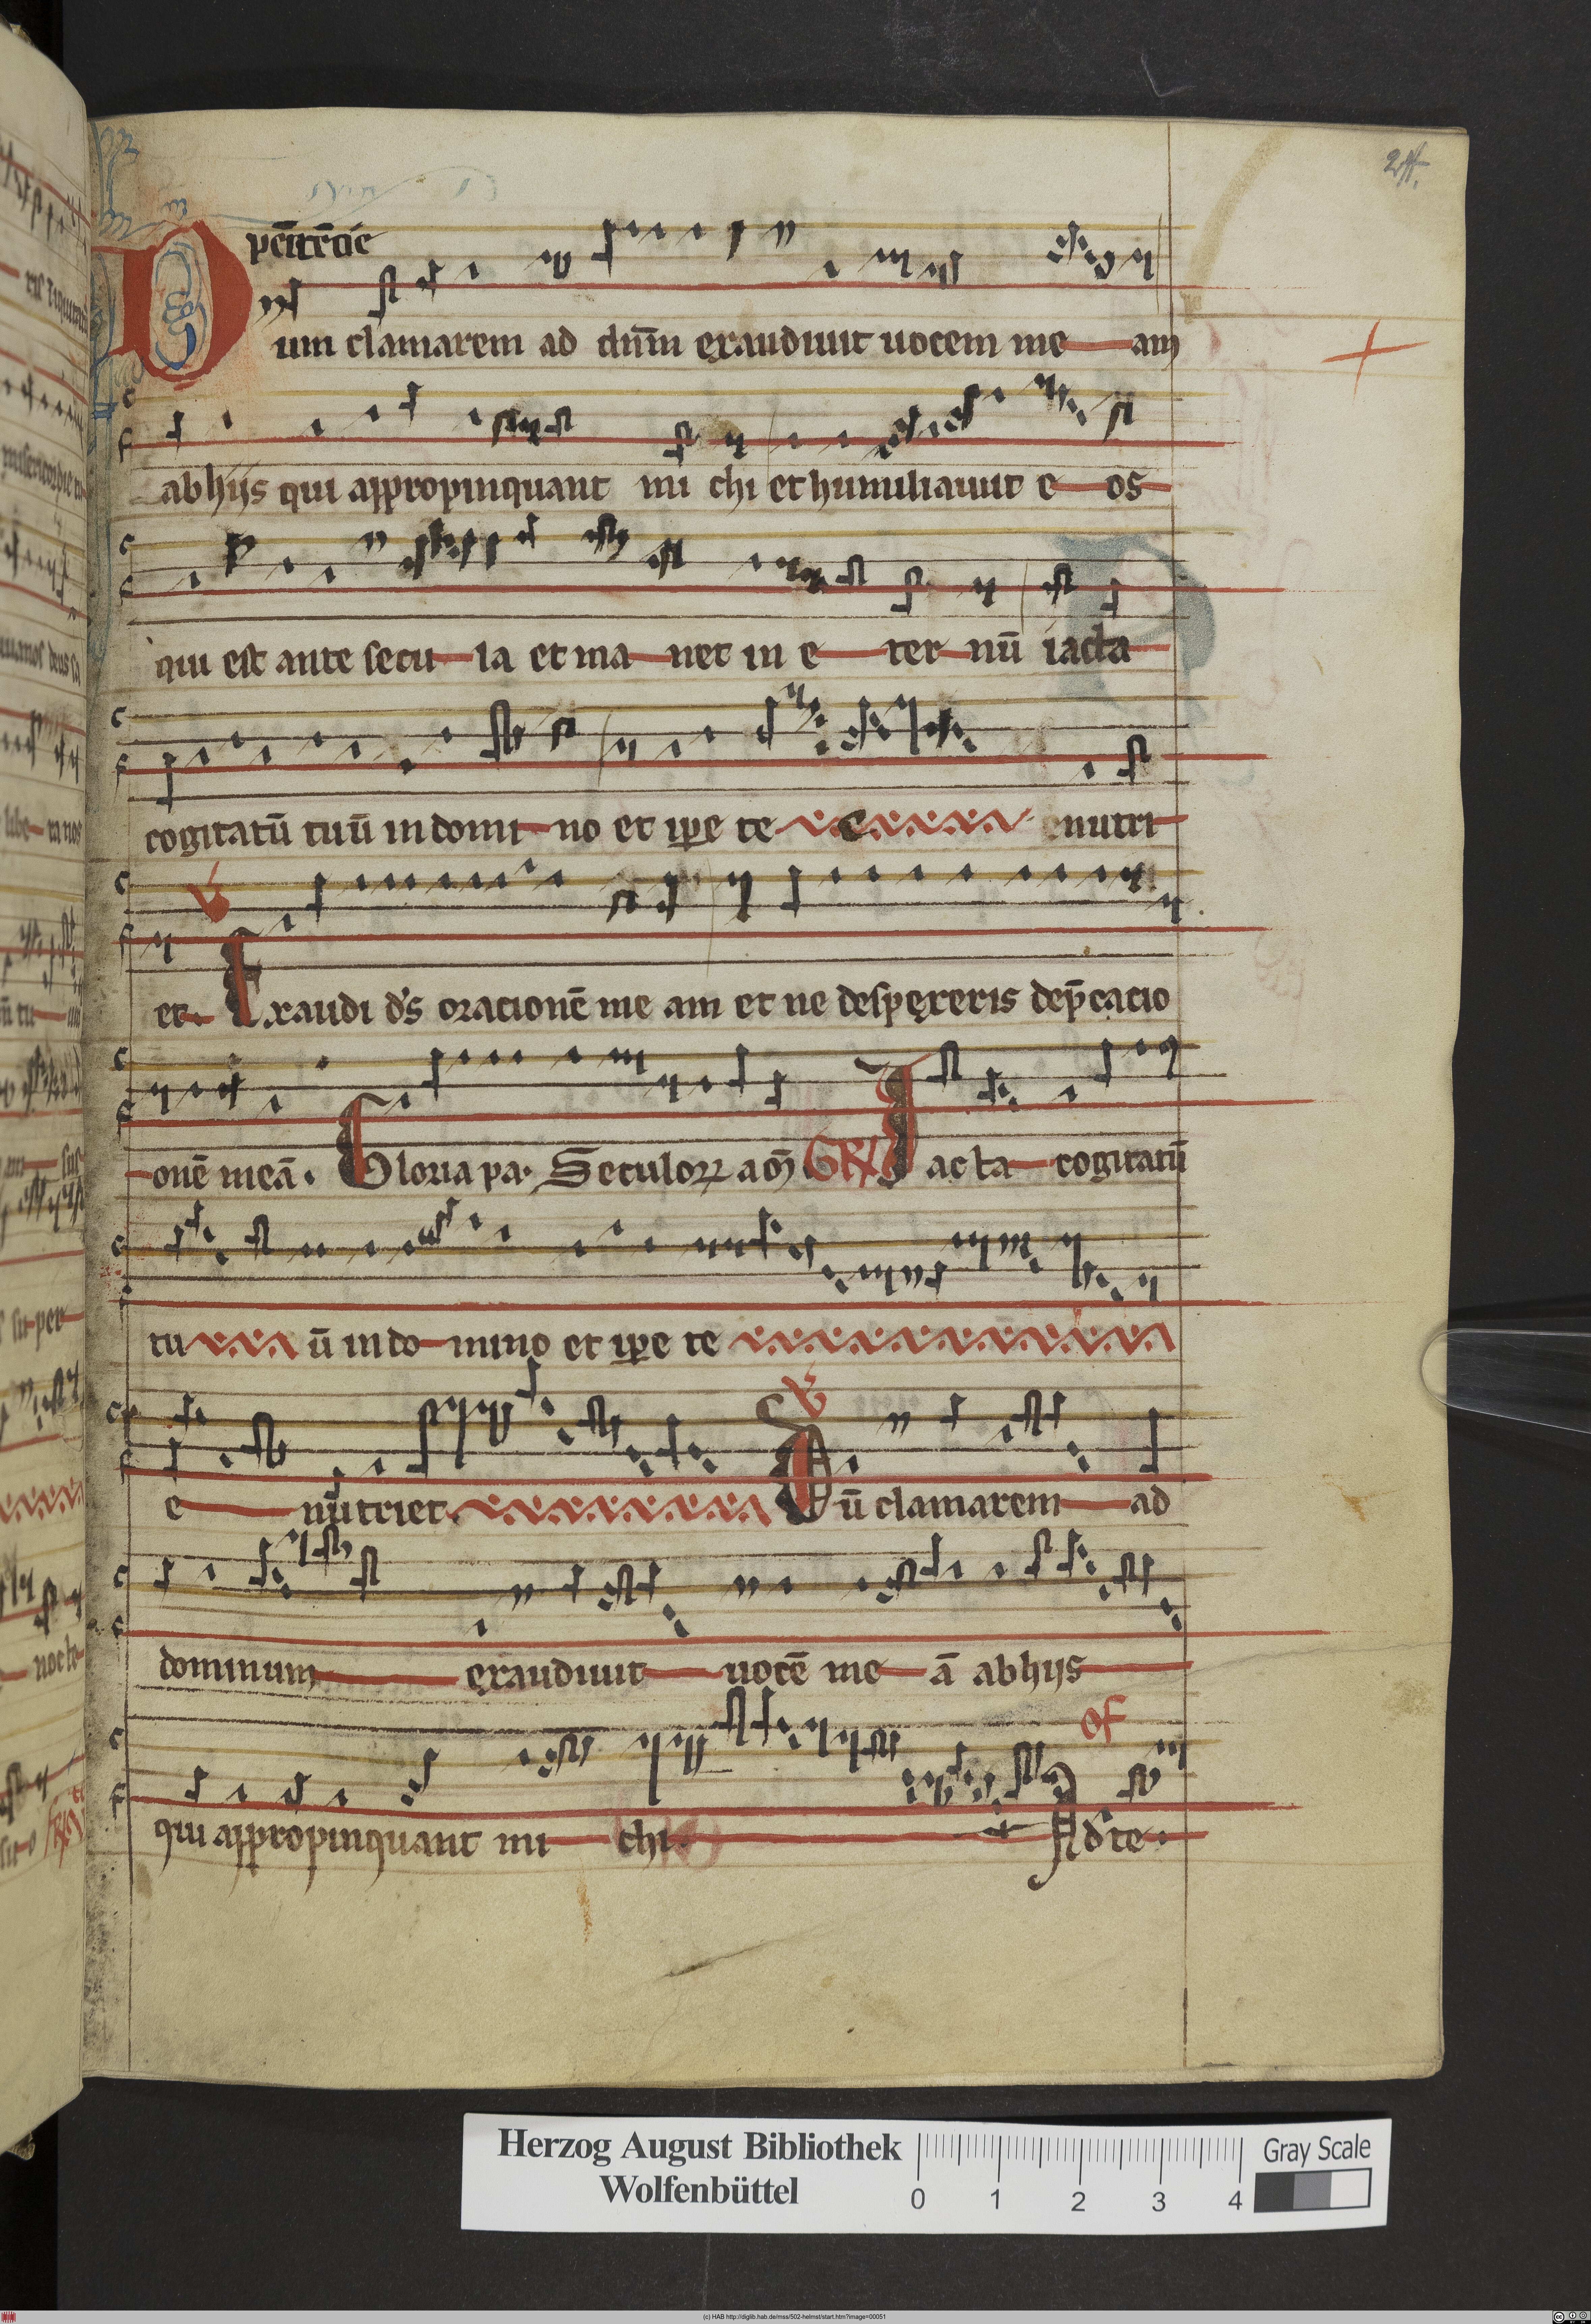 pēitētie
Dum clamarem ad dn̄m exaudiuit uocem me am
ab hijs qui appropinquant mi chi et humiliauit e os
qui est ante secu la et ma net in e ter nū iacta
cogitatū tuū in domi no et ip̄e te e nutri
et. Exaudi d̄s orationē me am et ne despexeris dep̄catio
onē meā. Gloria pa. Seculoꝝ am̄ GR Iacta cogitatū
tu ū in do mino et ip̄e te
e nutriet. Dū clamarem ad
dominum exaudiuit uocē me ā ab hijs
of
qui appropinquant mi chi. Ad te.
Herzog August Bibliothek
Wolfenbüttel
0 1 2 3 4
Gray Scale
(c) HAB http://diglib.hab.de/mss/502-helmst/start.htm?image=00051